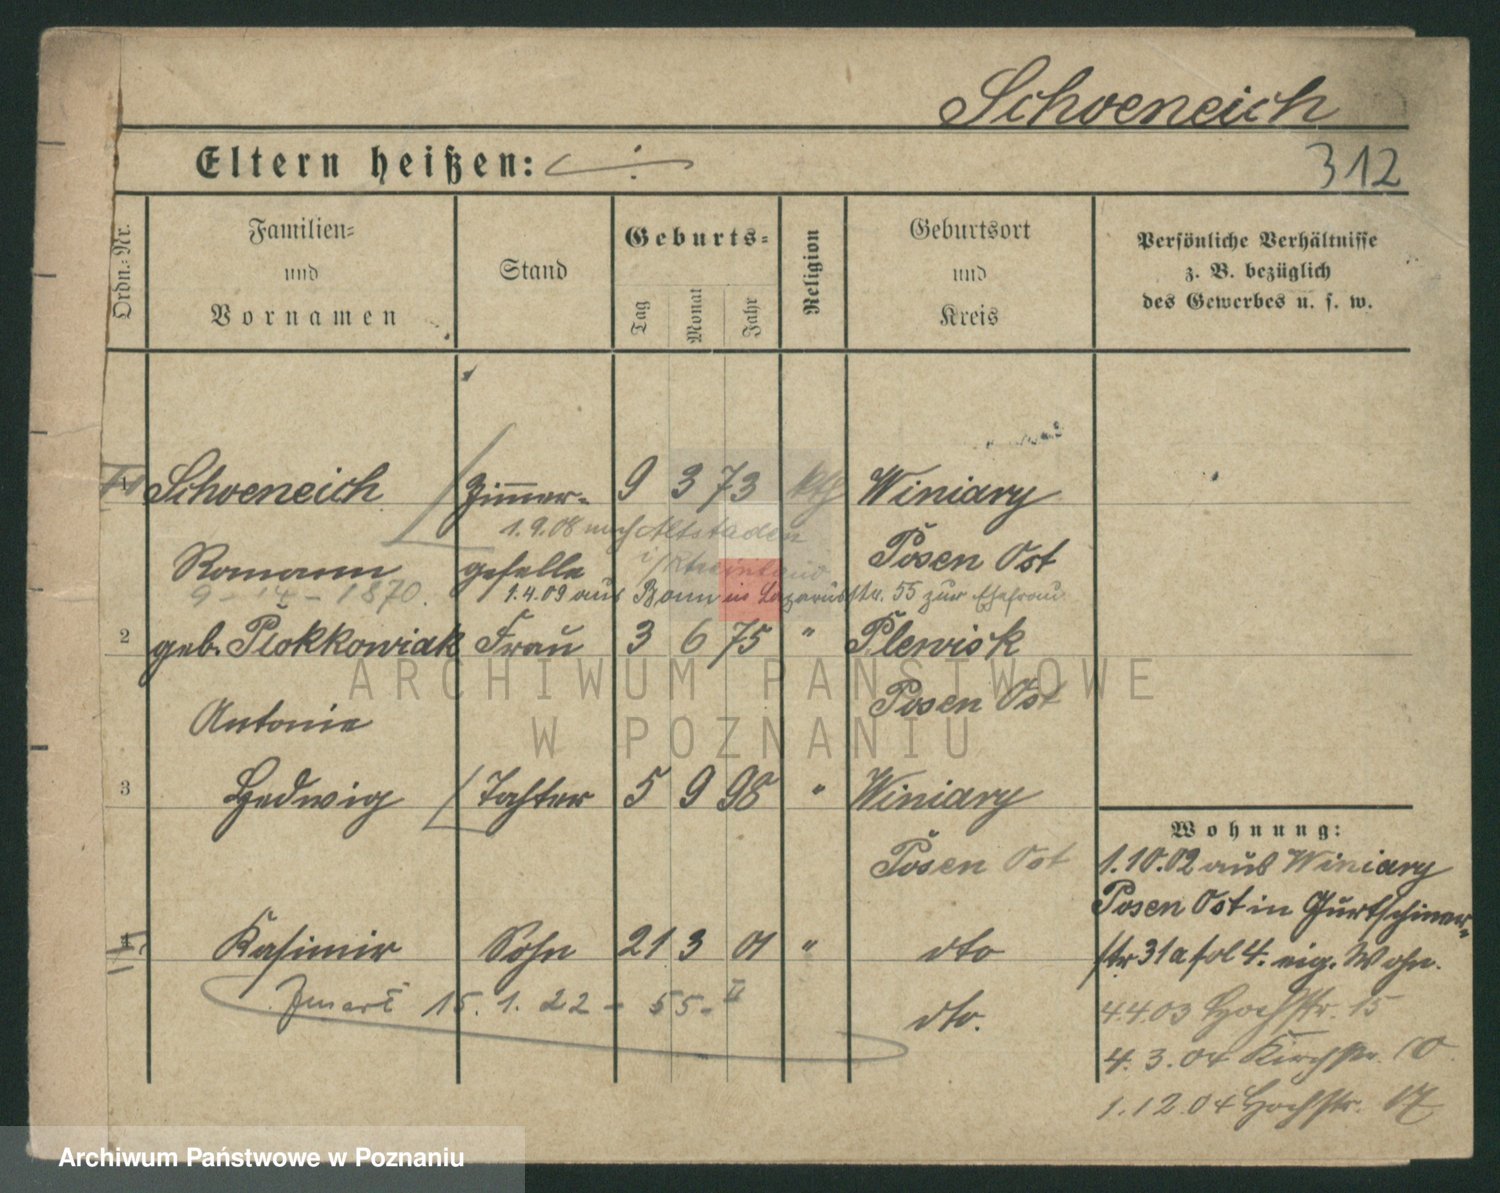 Schoeneich
Eltern heißen:
312
Ordn.-Nr.
Familien-
und
Vornamen
Stand
Geburts-
Tag
Monat
Jahr
Religion
Geburtsort
und
Kreis
Persönliche Verhältnisse
z. B. bezüglich
des Gewerbes u. s. w.
1 Schoeneich Zimmer- 9 3 73 kth Winiary
1.9.08 nach Altstaden
Romann geselle i/Rheinland Posen Ost
9 - 14 - 1870.
1.4.09 aus Bonn in Lazarusstr. 55 zur Ehefrau
2 geb. Piokkowiak Frau 3 6 75 " Plewisk
Antonie Posen Ost
3 Hedwig Tochter 5 9 98 " Winiary
Posen Ost
4 Kasimir Sohn 21 3 01 " dto
Zmarł 15. 1. 22 - 55 - II
dto.
Wohnung:
1.10.02 aus Winiary
Posen Ost in Gurtschiner-
str 31a fol 4. eig. Wohn.
4.4.03 Hochstr. 15
4.3.04 Kirchstr. 10.
1.12.04 Hochstr. 17
ARCHIWUM PAŃSTWOWE
W POZNANIU
Archiwum Państwowe w Poznaniu